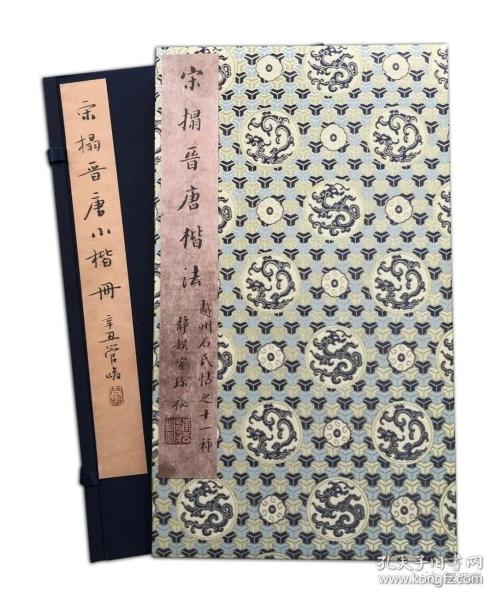 宋搨晋唐小楷冊
辛丑管峻
宋搨晉唐楷法
越州石氏帖之十一種
靜娱室珍秘
孔夫子旧书网
www.kongfz.com